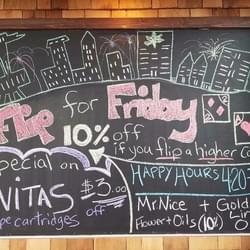 Flip for Friday
10% off
if you flip a higher ca
pecial on
NITAS $3.00
pe cartridges off
HAPPY HOURS 420
Mr Nice + Gold
Flower + Oils (10%)